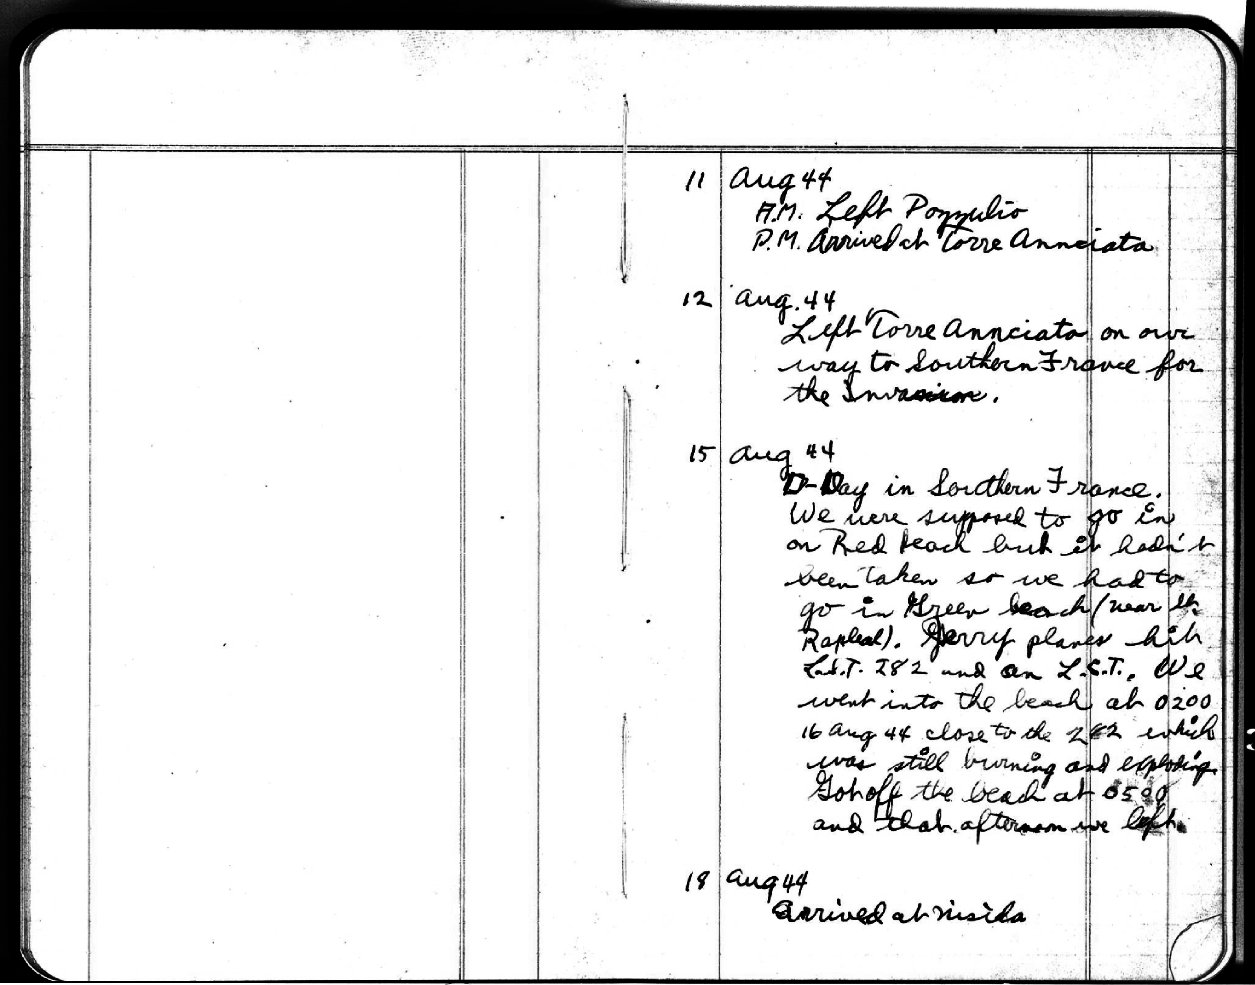 11 Aug 44
A.M. Left Pozzulio
P.M. Arrived at Torre Annciata
12 Aug. 44
Left Torre Annciata on our
way to Southern France for
the Invasion.
15 Aug 44
D-Day in Southern France.
We were supposed to go in
on Red beach but it hadn't
been taken so we had to
go in Green beach (near St.
Rapheal). Jerry planes hit
L.S.T. 282 and an L.C.T.. We
went into the beach at 0200
16 Aug 44 close to the 282 which
was still burning and exploding
Got off the beach at 0500
and that afternoon we left.
18 Aug 44
Arrived at Nisida